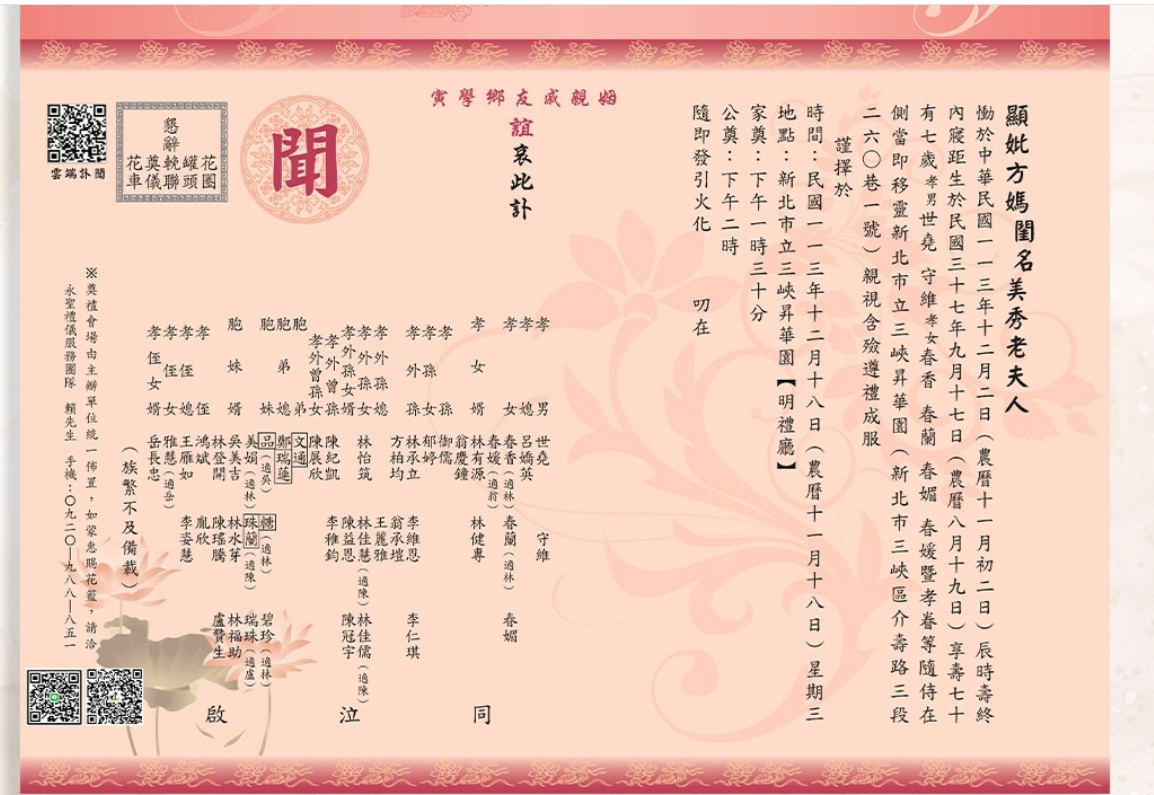 顯妣方媽閨名美秀老夫人
慟於中華民國一一三年十二月二日（農曆十一月初二日）辰時壽終
內寢距生於民國三十七年九月十七日（農曆八月十九日）享壽七十
有七歲孝男世堯 守維孝女春香 春蘭 春媚 春媛暨孝眷等隨侍在
側當即移靈新北市立三峽昇華園（新北市三峽區介壽路三段
二六〇巷一號）親視含殮遵禮成服
謹擇於
時間：民國一一三年十二月十八日（農曆十一月十八日）星期三
地點：新北市立三峽昇華園【明禮廳】
家奠：下午一時三十分
公奠：下午二時
隨即發引火化
叨在
姻親戚友鄉學寅
誼哀此訃
聞
孝男 世堯 守維
孝媳 呂嬌英
孝女 春香（適林） 春蘭（適林） 春媚
春媛（適翁）
孝女婿 林有源 林健專
翁慶鐘
孝孫 御儒
孝孫女 郁婷
孝外孫 林承立 李維恩 李仁琪
方柏均 翁承塏
孝外孫媳 王麗雅
孝外孫女 林怡筑 林佳慧（適陳） 林佳儒（適陳）
孝外孫女婿 陳益恩 陳冠宇
孝外曾孫 陳紀凱 李稚鈞
孝外曾孫女 陳展欣
胞弟 文通
胞弟媳 鄭瑞蓮
胞妹 品（適吳） 糖（適林） 碧珍（適林）
美娟（適林） 珠蘭（適陳） 瑞珠（適盧）
胞妹婿 吳美吉 林水芽 林福助
林登開 陳瑤騰 盧贊生
孝侄 鴻斌 胤欣
孝侄媳 王雁如 李姿慧
孝侄女 雅慧（適岳）
孝侄女婿 岳長忠
（族繁不及備載）
同
泣
啟
懇辭
花圈
罐頭
輓聯
奠儀
花車
雲端訃聞
※奠禮會場由主辦單位統一佈置，如蒙惠賜花籃，請洽
永聖禮儀服務團隊 賴先生 手機：〇九二〇—九八八—八五一